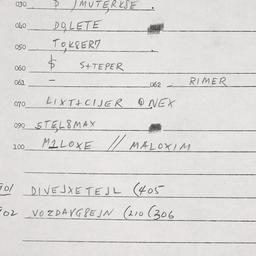 030 D JMUTERKSE.
040 DOLETE
050 TOKSER7
060 $ S+TEPER
061 – 062 – RIMER
070 LIXT+CIJER O NEX
090 STEL8MAX
100 M1LOXE // MALOXIM
701 DIVEJXETEJL (405
702 VOZDAVG8EJN (210 (306